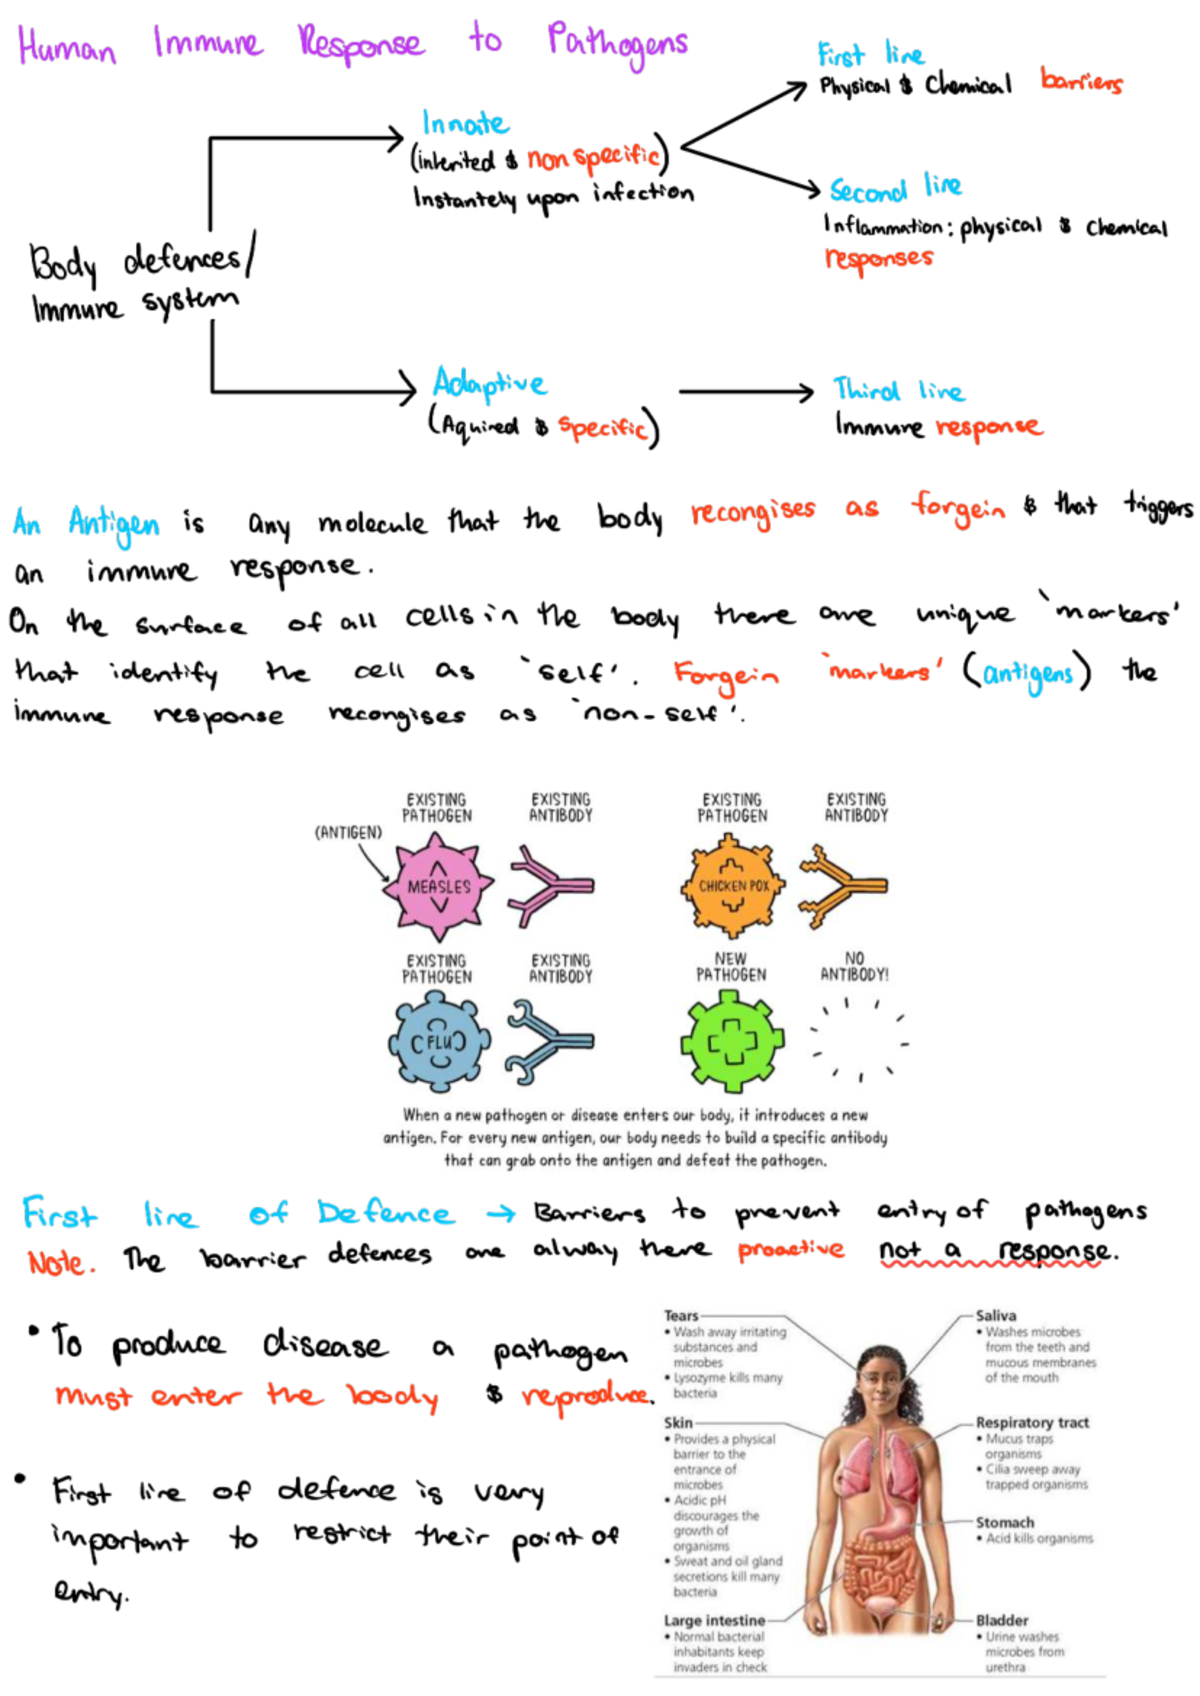 Human Immune Response to Pathogens
First line
Physical & Chemical barriers
Innate
(inherited & non specific)
Instantely upon infection
Second line
Inflammation: physical & chemical
responses
Body defences/
Immune system
Adaptive
(Aquired & specific)
Third line
Immune response
An Antigen is any molecule that the body recongises as forgein & that triggers
an immune response.
On the surface of all cells in the body there are unique 'markers'
that identify the cell as 'self'. Forgein 'markers' (antigens) the
immune response recongises as 'non-self'.
EXISTING
PATHOGEN
EXISTING
ANTIBODY
EXISTING
PATHOGEN
EXISTING
ANTIBODY
(ANTIGEN)
MEASLES
CHICKEN POX
EXISTING
PATHOGEN
EXISTING
ANTIBODY
NEW
PATHOGEN
NO
ANTIBODY!
FLU
When a new pathogen or disease enters our body, it introduces a new
antigen. For every new antigen, our body needs to build a specific antibody
that can grab onto the antigen and defeat the pathogen.
First line of Defence → Barriers to prevent entry of pathogens
Note. The barrier defences are alway there proactive not a response.
• To produce disease a pathogen
must enter the body & reproduce.
• First line of defence is very
important to restrict their point of
entry.
Tears
• Wash away irritating
substances and
microbes
• Lysozyme kills many
bacteria
Skin
• Provides a physical
barrier to the
entrance of
microbes
• Acidic pH
discourages the
growth of
organisms
• Sweat and oil gland
secretions kill many
bacteria
Large intestine
• Normal bacterial
inhabitants keep
invaders in check
Saliva
• Washes microbes
from the teeth and
mucous membranes
of the mouth
Respiratory tract
• Mucus traps
organisms
• Cilia sweep away
trapped organisms
Stomach
• Acid kills organisms
Bladder
• Urine washes
microbes from
urethra